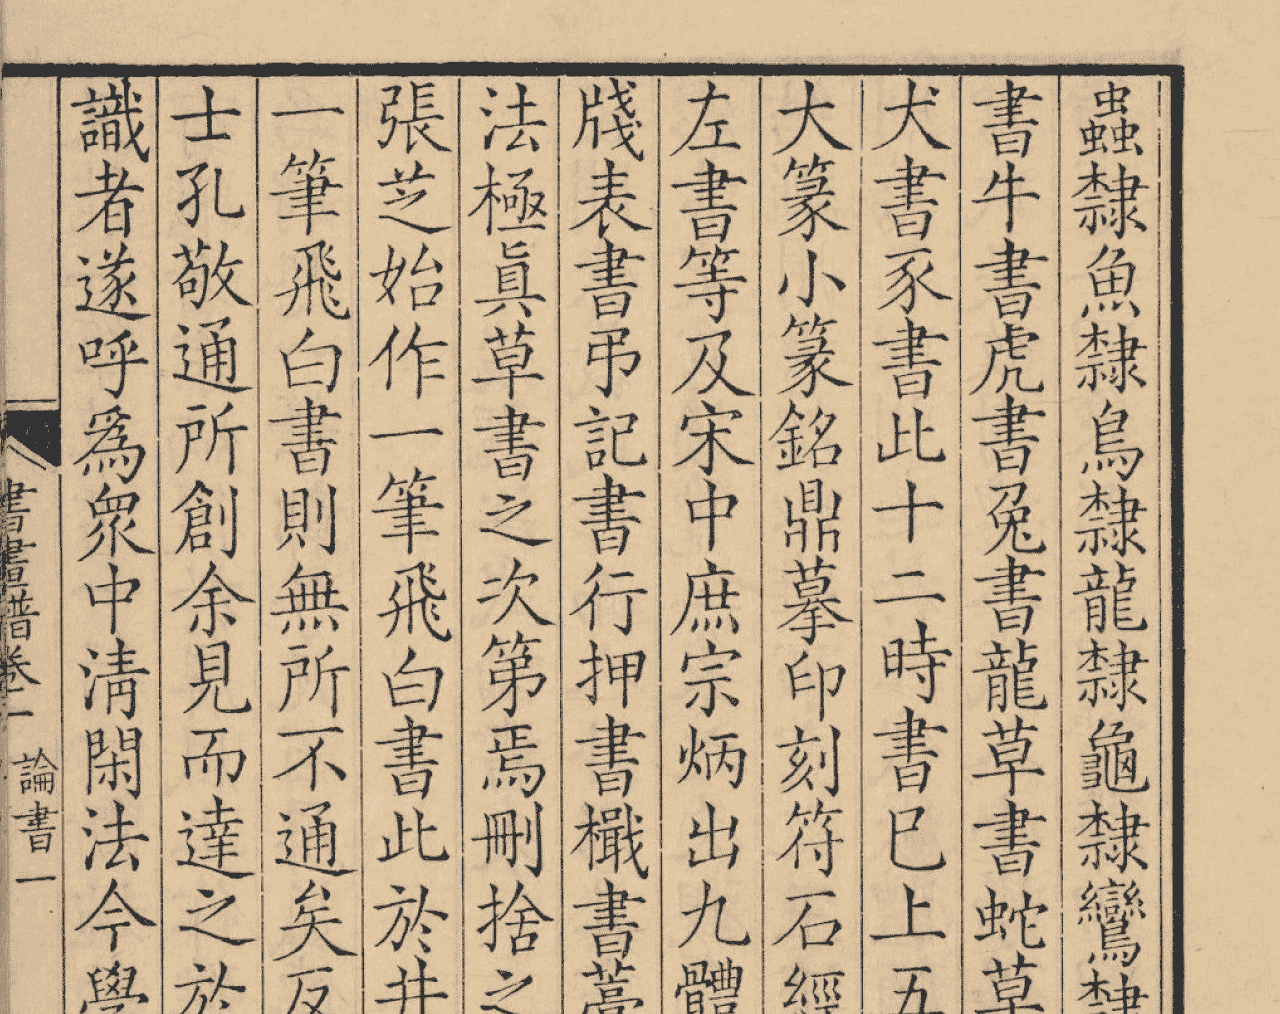 蟲隸魚隸鳥隸龍隸龜隸鸞隸
書牛書虎書兔書龍草書蛇草
犬書豕書此十二時書巳上五
大篆小篆銘鼎摹印刻符石經
左書等及宋中庶宗炳出九體
牋表書弔記書行押書檝書藁
法極眞草書之次第焉刪捨之
張芝始作一筆飛白書此於井
一筆飛白書則無所不通矣反
士孔敬通所創余見而達之於
識者遂呼爲衆中清閑法今學
書畫譜卷一
論書一